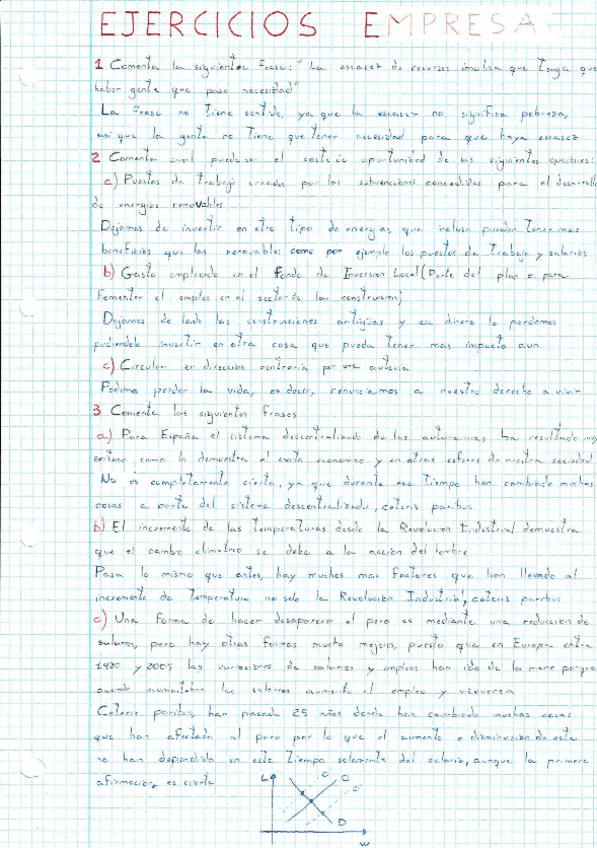 EJERCICIOS EMPRESA
1 Comenta la siguiente frase: "La escasez de recursos implica que tenga que
haber gente que pase necesidad"
La frase no tiene sentido, ya que la escasez no significa pobreza,
asi que la gente no tiene que tener necesidad para que haya escasez
2 Comenta cual puede ser el coste de oportunidad de las siguientes opciones:
a) Puestos de trabajo creados por las subvenciones concedidas para el desarrollo
de energias renovables
Dejamos de invertir en otro tipo de energias, que incluso puedan tener mas
beneficios que las renovables como por ejemplo los puestos de trabajo y salarios
b) Gasto empleado en el Fondo de Inversion Local (Parte del plan e para
fomentar el empleo en el sector de la construcion)
Dejamos de lado las construciones antigüas y ese dinero lo perdemos
pudiendolo invertir en otra cosa que pueda tener mas impacto aun
c) Circular en direccion contraria por una autovia
Podemos perder la vida, es decir, renunciamos a nuestro derecho a vivir
3 Comenta las siguientes frases
a) Para España el sistema descentralizado de las autonomias, ha resultado muy
exitoso como lo demuestra el exito economico y en otras esferas de nuestra sociedad
No es completamente cierta, ya que durante ese tiempo han cambiado muchas
cosas a parte del sistema descentralizado, ceteris paribus
b) El incremento de las temperaturas desde la Revolucion Industrial demuestra
que el cambio climatico se debe a la accion del hombre
Pasa lo mismo que antes, hay muchos mas factores que han llevado al
incremento de temperatura no solo la Revolucion Industrial, ceteris paribus
c) Una forma de hacer desaparecer el paro es mediante una reduccion de
salarios, pero hay otras formas mucho mejores, puesto que en Europa entre
1980 y 2005 las variaciones de salarios y empleos han ido de la mano porque
cuando aumentaban los salarios aumento el empleo y viceversa
Ceteris paribus, han pasado 25 años donde han cambiado muchas cosas
que han afectado al paro por lo que el aumento o disminucion de este
no han dependido en este tiempo solamente del salario, aunque la primera
afirmacion, es cierta
L O' O O'
D
W